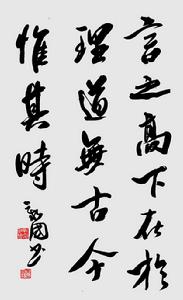 言之高下在於
理道無古今
惟其時